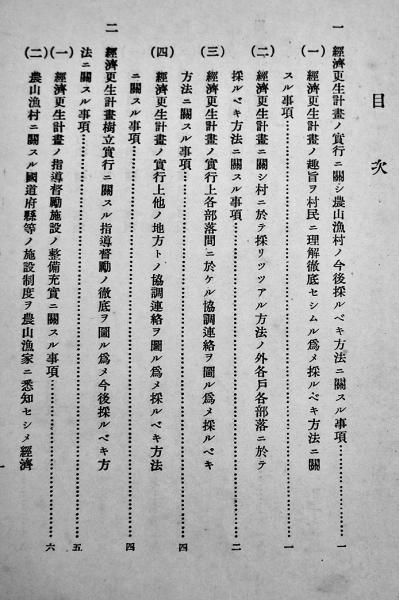 目次
一 經濟更生計畫ノ實行ニ關シ農山漁村ノ今後採ルベキ方法ニ關スル事項…………一
(一) 經濟更生計畫ノ趣旨ヲ村民ニ理解徹底セシムル爲メ採ルベキ方法ニ關
スル事項…………一
(二) 經濟更生計畫ニ關シ村ニ於テ採リツツアル方法ノ外各戸各部落ニ於テ
採ルベキ方法ニ關スル事項…………二
(三) 經濟更生計畫ノ實行上各部落間ニ於ケル協調連絡ヲ圖ル爲メ採ルベキ
方法ニ關スル事項…………四
(四) 經濟更生計畫ノ實行上他ノ地方トノ協調連絡ヲ圖ル爲メ採ルベキ方法
ニ關スル事項…………四
二 經濟更生計畫樹立實行ニ關スル指導督勵ノ徹底ヲ圖ル爲メ今後採ルベキ方
法ニ關スル事項…………五
(一) 經濟更生計畫ノ指導督勵施設ノ整備充實ニ關スル事項…………六
(二) 農山漁村ニ關スル國道府縣等ノ施設制度ヲ農山漁家ニ悉知セシメ經濟
一